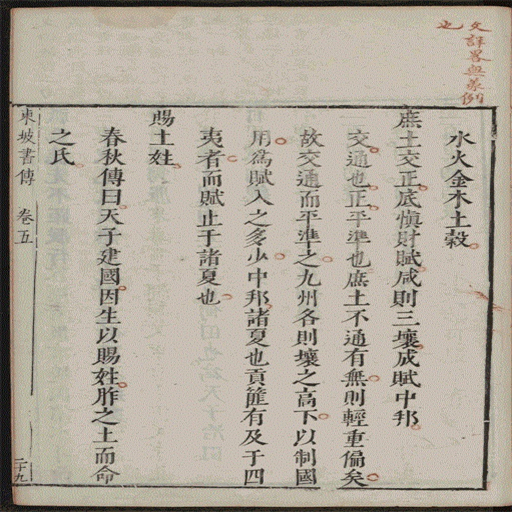 文詳畧無義例
也
水火金木土穀
庶土交正底愼財賦咸則三壤成賦中邦
交通也正平準也庶土不通有無則輕重偏矣
故交通而平準之九州各則壤之高下以制國
用爲賦入之多少中邦諸夏也貢篚有及于四
夷者而賦止于諸夏也
賜土姓
春秋傳曰天子建國因生以賜姓胙之土而命
之氏
東坡書傳 卷五 二十九